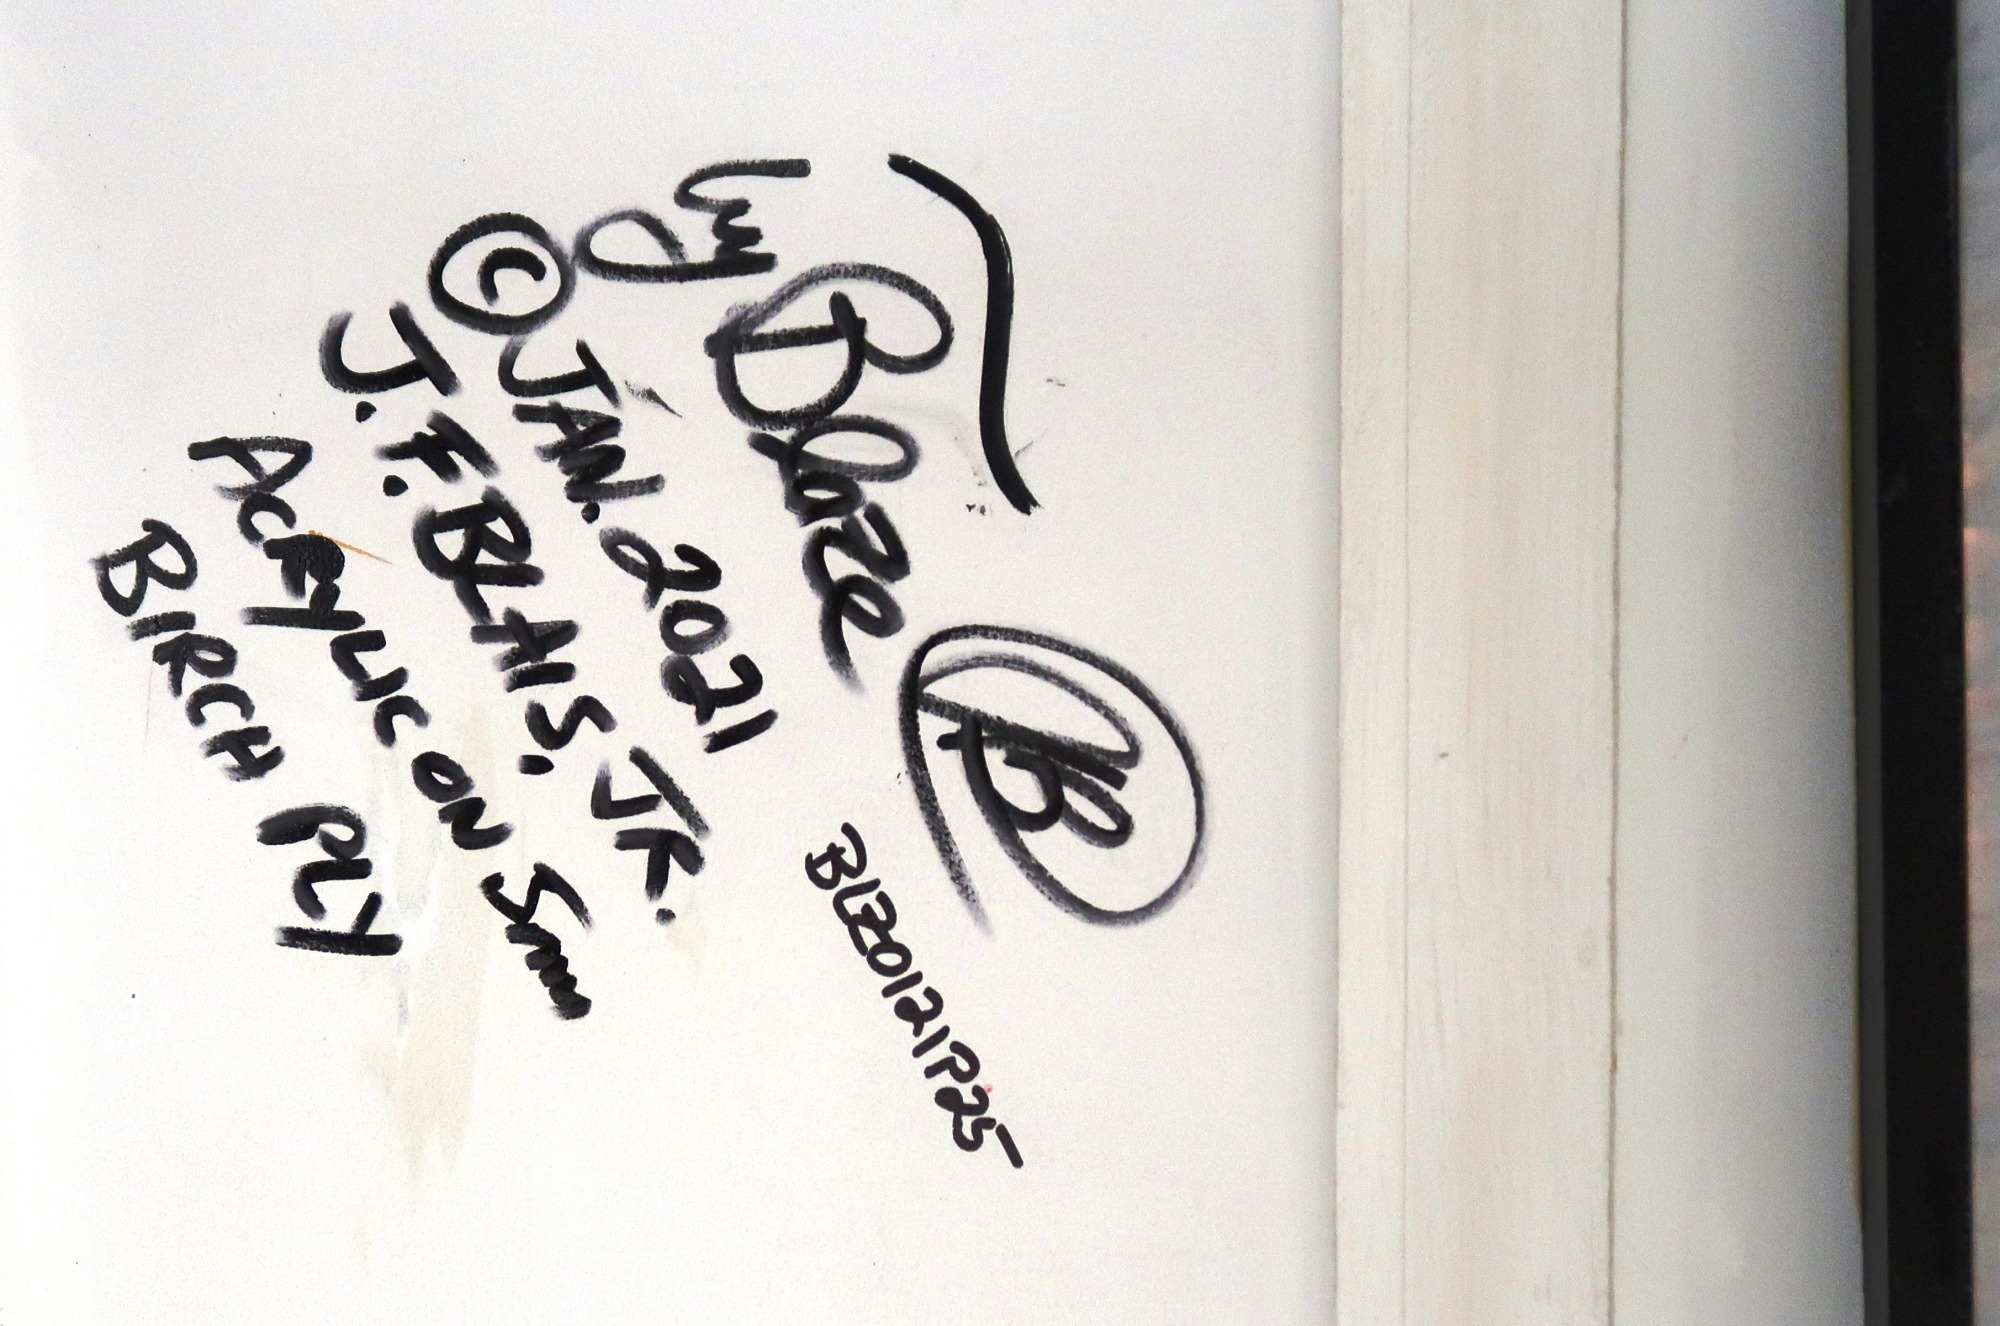 by Blaze
BLZ0121P25
© JAN. 2021
J. F. BLAIS, JR.
ACRYLIC ON 5mm
BIRCH PLY